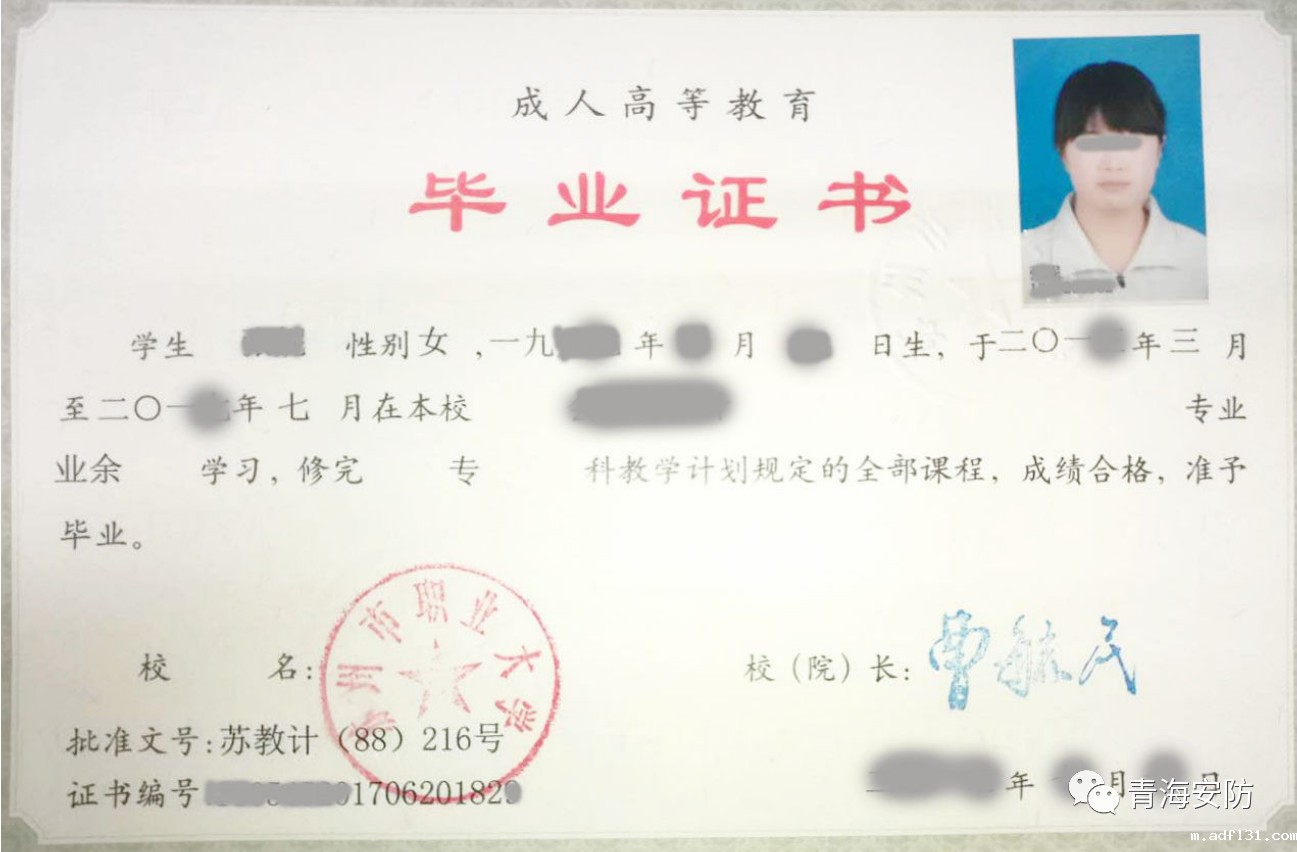 成人高等教育
毕业证书
学生 性别 女 ,一九 年 月 日生, 于二〇一 年 三 月
至二〇一 年 七 月在本校 专业
业余 学习, 修完 专 科教学计划规定的全部课程, 成绩合格, 准予
毕业。
苏州市职业大学
校 名:
校（院）长: 曹毓民
批准文号:苏教计（88）216号
证书编号 0170620182
年 月 日
青海安防
m.adfl31.com